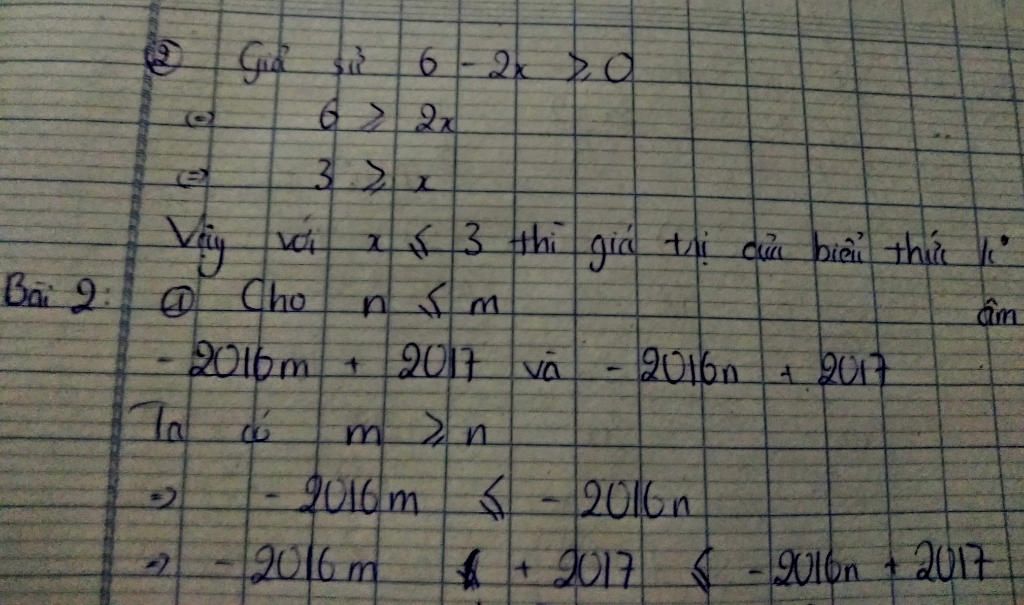 ② Giả sử 6 - 2x ⩾ 0
⇔ 6 ⩾ 2x
⇔ 3 ⩾ x
Vậy với x ⩽ 3 thì giá trị của biểu thức k°
âm
Bài 2: ① Cho n ⩽ m
- 2016m + 2017 và - 2016n + 2017
Ta có m ⩾ n
⇒ - 2016m ⩽ - 2016n
⇒ - 2016m + 2017 ⩽ - 2016n + 2017